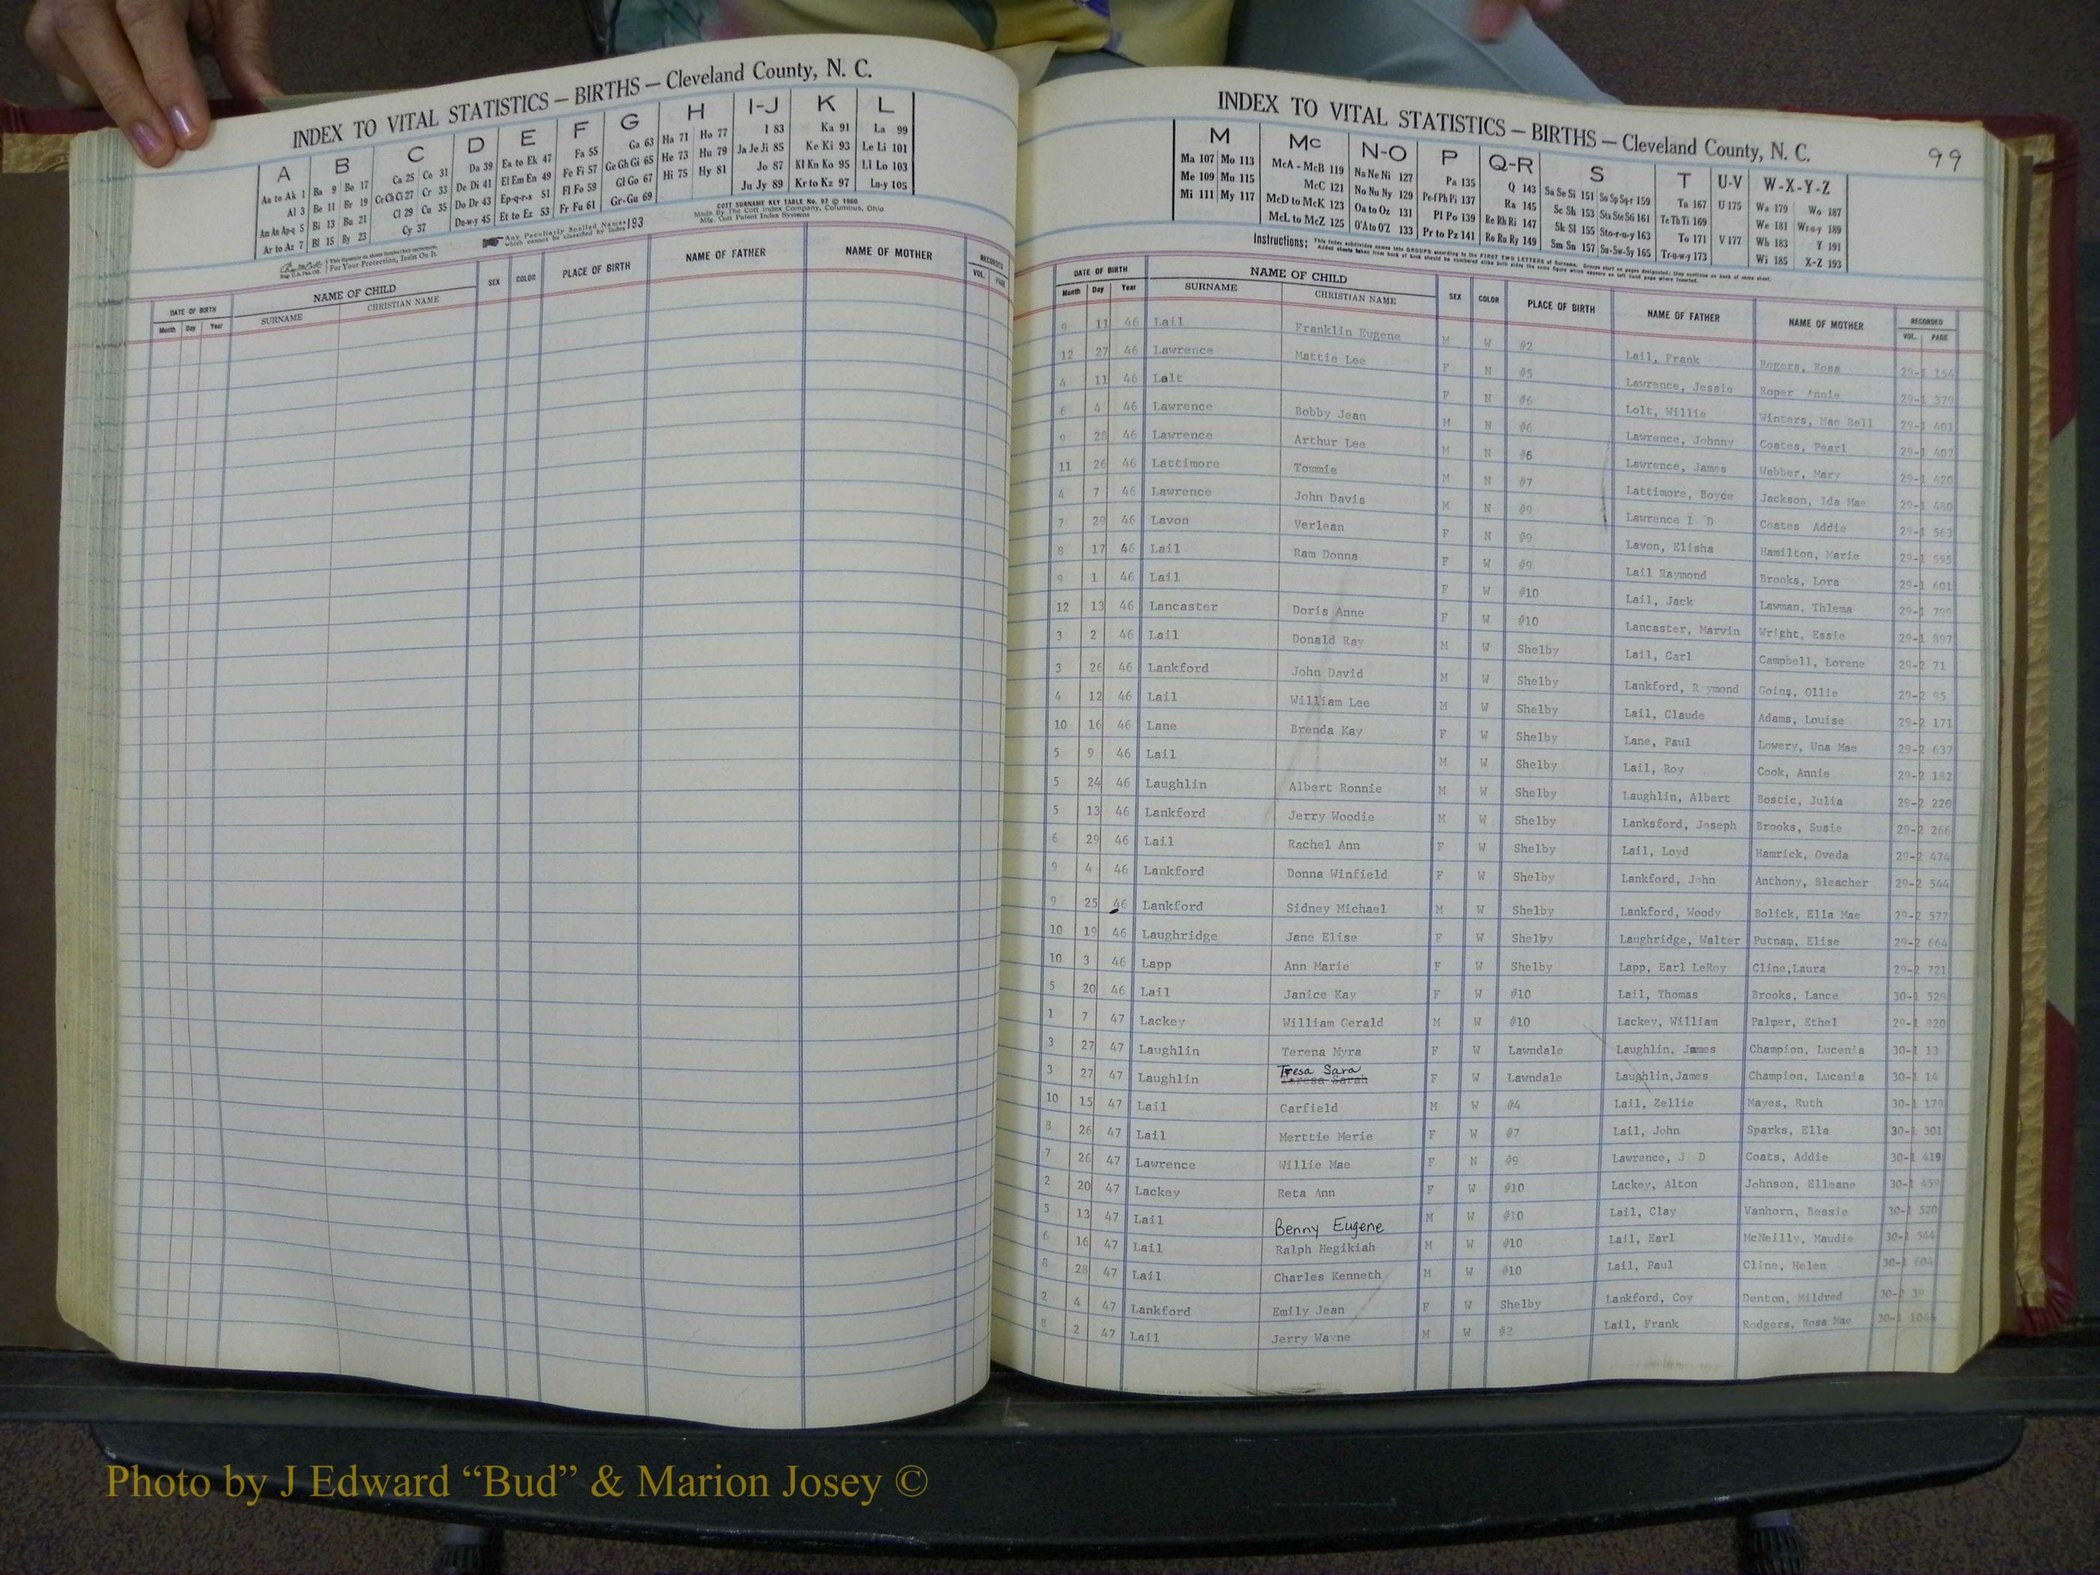 INDEX TO VITAL STATISTICS — BIRTHS — Cleveland County, N. C.
A B C D E F G H I-J K L
Aa to Ak 1 Ba 9 Bo 17 Ca 25 Co 31 Da 39 Ea to Ek 47 Fa 55 Ga 63 Ha 71 Ho 77 I 83 Ka 91 La 99
Al 3 Be 11 Br 19 Ce Ch Ci 27 Cr 33 De Di 41 El Em En 49 Fe Fi 57 Ge Gh Gi 65 He 73 Hu 79 Ja Je Ji 85 Ke Ki 93 Le Li 101
Am An Ap-q 5 Bi 13 Bu 21 Cl 29 Cu 35 Do Dr 43 Ep-q-r-s 51 Fl Fo 59 Gl Go 67 Hi 75 Hy 81 Jo 87 Kl Kn Ko 95 Ll Lo 103
Ar to Az 7 Bl 15 By 23 Cy 37 Du-w-y 45 Et to Ez 53 Fr Fu 61 Gr-Gu 69 Ju Jy 89 Kr to Kz 97 Lu-y 105
COTT SURNAME KEY TABLE No. 97 © 1960
Made By The Cott Index Company, Columbus, Ohio
Mfg. Cott Patent Index Systems
Any Peculiarly Spelled Names which cannot be classified by Index 193
For Your Protection, Insist On It.
DATE OF BIRTH NAME OF CHILD SEX COLOR PLACE OF BIRTH NAME OF FATHER NAME OF MOTHER RECORDED
Month Day Year SURNAME CHRISTIAN NAME VOL. PAGE
INDEX TO VITAL STATISTICS — BIRTHS — Cleveland County, N. C. 99
M Mc N-O P Q-R S T U-V W-X-Y-Z
Ma 107 Mo 113 McA - McB 119 Na Ne Ni 127 Pa 135 Q 143 Sa Se Si 151 So Sp Sq-r 159 Ta 167 U 175 Wa 179 Wo 187
Me 109 Mu 115 McC 121 No Nu Ny 129 Pe-f Ph Pi 137 Ra 145 Sc Sh 153 Sta Ste Sti 161 Te Th Ti 169 We 181 Wr-u-y 189
Mi 111 My 117 McD to McK 123 Oa to Oz 131 Pl Po 139 Re Rh Ri 147 Sk Sl 155 Sto-r-u-y 163 To 171 V 177 Wh 183 Y 191
McL to McZ 125 O'A to O'Z 133 Pr to Pz 141 Ro Ru Ry 149 Sm Sn 157 Su-Sw-Sy 165 Tr-u-w-y 173 Wi 185 X-Z 193
Instructions: This Index subdivides names into GROUPS according to the FIRST TWO LETTERS of Surname. Groups start on pages designated; they continue on back of same sheet.
Added sheets taken from back of book should be numbered alike both sides the same figure which appears on left hand page where inserted.
DATE OF BIRTH NAME OF CHILD SEX COLOR PLACE OF BIRTH NAME OF FATHER NAME OF MOTHER RECORDED
Month Day Year SURNAME CHRISTIAN NAME VOL. PAGE
9 11 46 Lail Franklin Eugene M W #2 Lail, Frank Rogers, Rosa 29-1 154
12 27 46 Lawrence Mattie Lee F N #5 Lawrence, Jessie Roper Annie 29-1 379
4 11 46 Lalt F N #6 Lolt, Willie Winters, Mae Bell 29-1 401
6 4 46 Lawrence Bobby Jean M N #6 Lawrence, Johnny Coates, Pearl 29-1 407
9 28 46 Lawrence Arthur Lee M N #6 Lawrence, James Webber, Mary 29-1 420
11 26 46 Lattimore Tommie M N #7 Lattimore, Boyce Jackson, Ida Mae 29-1 480
4 7 46 Lawrence John Davis M N #9 Lawrence I D Coates Addie 29-1 563
7 29 46 Lavon Verlean F N #9 Lavon, Elisha Hamilton, Marie 29-1 595
8 17 46 Lail Ram Donna F W #9 Lail Raymond Brooks, Lora 29-1 601
9 1 46 Lail F W #10 Lail, Jack Lawman, Thlema 29-1 799
12 13 46 Lancaster Doris Anne F W #10 Lancaster, Marvin Wright, Essie 29-1 897
3 2 46 Lail Donald Ray M W Shelby Lail, Carl Campbell, Lorene 29-2 71
3 26 46 Lankford John David M W Shelby Lankford, R ymond Going, Ollie 29-2 95
4 12 46 Lail William Lee M W Shelby Lail, Claude Adams, Louise 29-2 171
10 16 46 Lane Brenda Kay F W Shelby Lane, Paul Lowery, Una Mae 29-2 637
5 9 46 Lail M W Shelby Lail, Roy Cook, Annie 29-2 182
5 24 46 Laughlin Albert Ronnie M W Shelby Laughlin, Albert Bostic, Julia 29-2 220
5 13 46 Lankford Jerry Woodie M W Shelby Lanksford, Joseph Brooks, Susie 29-2 266
6 29 46 Lail Rachel Ann F W Shelby Lail, Loyd Hamrick, Oveda 29-2 474
9 4 46 Lankford Donna Winfield F W Shelby Lankford, John Anthony, Bleacher 29-2 544
9 25 46 Lankford Sidney Michael M W Shelby Lankford, Woody Bolick, Ella Mae 29-2 577
10 19 46 Laughridge Jane Elise F W Shelby Laughridge, Walter Putnam, Elise 29-2 664
10 3 46 Lapp Ann Marie F W Shelby Lapp, Earl LeRoy Cline,Laura 29-2 721
5 20 46 Lail Janice Kay F W #10 Lail, Thomas Brooks, Lance 30-1 529
1 7 47 Lackey William Gerald M W #10 Lackey, William Palmer, Ethel 29-1 920
3 27 47 Laughlin Terena Myra F W Lawndale Laughlin, James Champion, Lucenia 30-1 13
3 27 47 Laughlin Tresa Sara Teresa Sarah F W Lawndale Laughlin,James Champion, Lucenia 30-1 14
10 15 47 Lail Garfield M W #4 Lail, Zellie Mayes, Ruth 30-1 179
8 26 47 Lail Merttie Merie F W #7 Lail, John Sparks, Ella 30-1 301
7 26 47 Lawrence Willie Mae F N #9 Lawrence, J D Coats, Addie 30-1 419
2 20 47 Lackey Reta Ann F W #10 Lackey, Alton Johnson, Elleane 30-1 459
5 13 47 Lail Benny Eugene M W #10 Lail, Clay Vanhorn, Bessie 30-1 520
6 16 47 Lail Ralph Hegikiah M W #10 Lail, Earl McNeilly, Maudie 30-1 544
8 28 47 Lail Charles Kenneth M W #10 Lail, Paul Cline, Helen 30-1 604
2 4 47 Lankford Emily Jean F W Shelby Lankford, Coy Denton, Mildred 30-2 39
8 2 47 Lail Jerry Wayne M W #2 Lail, Frank Rodgers, Rosa Mae 30-1
Photo by J Edward “Bud” & Marion Josey ©